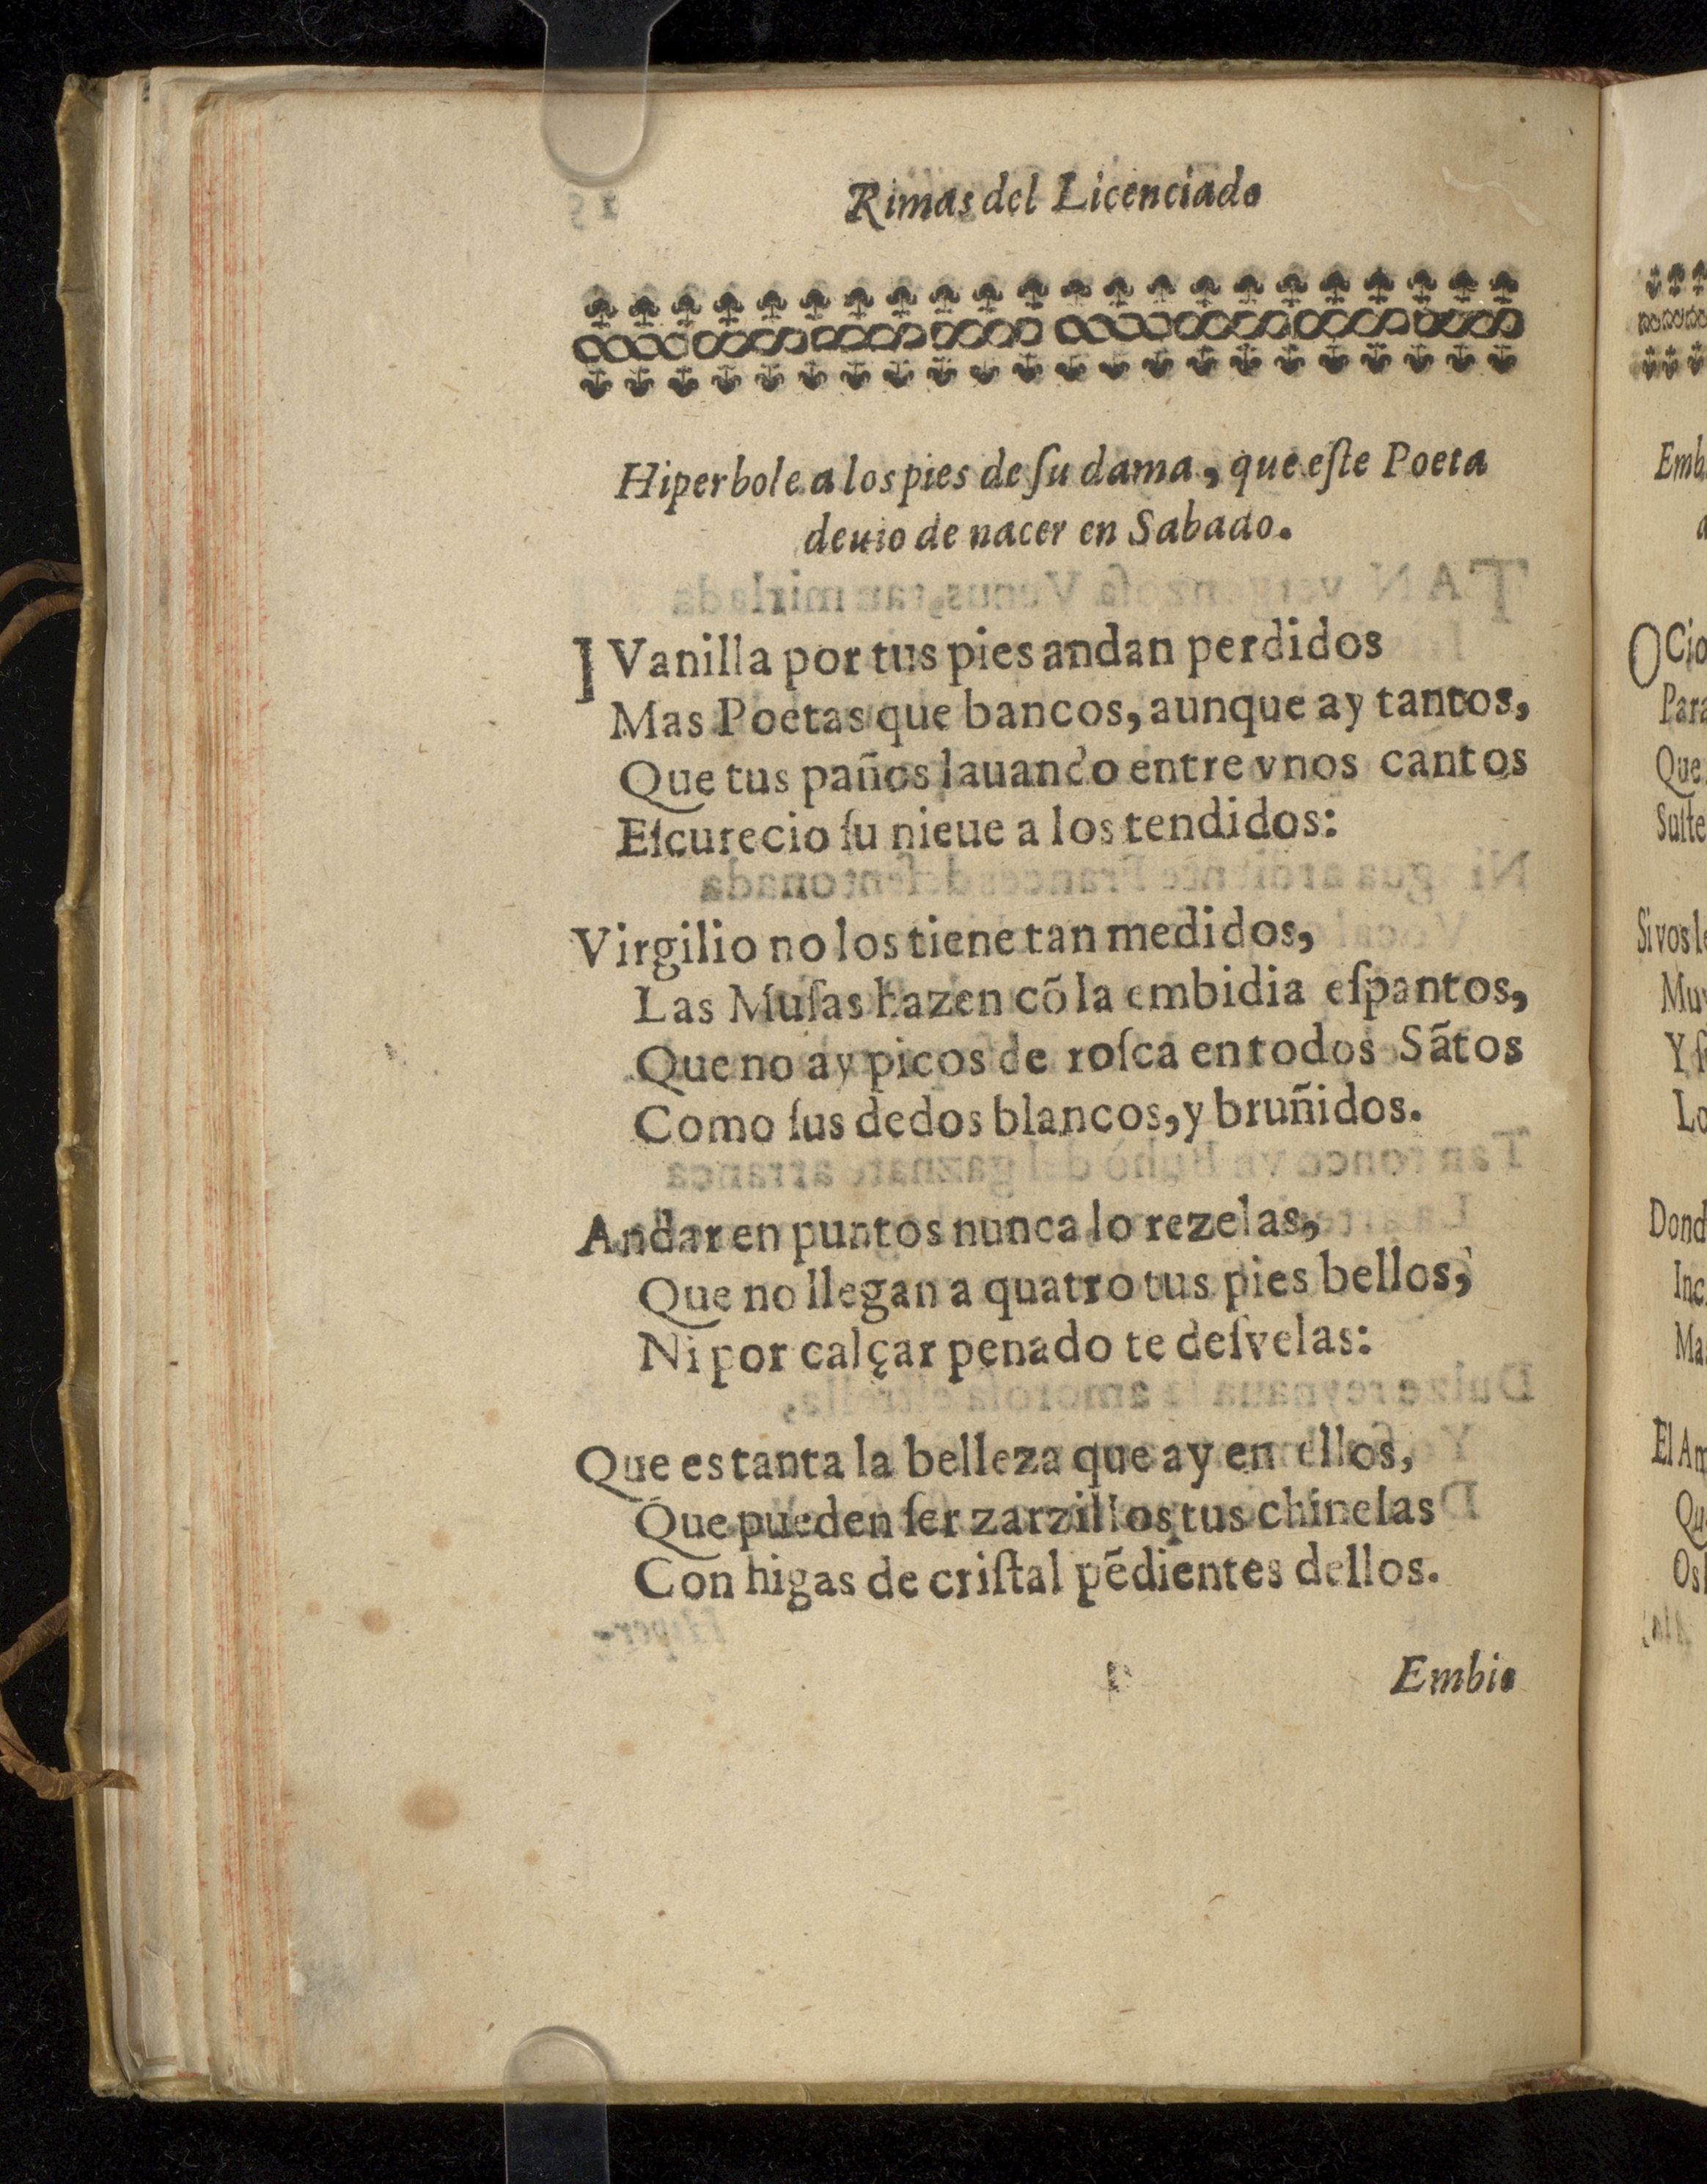 Rimas del Licenciado
Hiperbole a los pies de ſu dama, que eſte Poeta
deuio de nacer en Sabado.
IVanilla por tus pies andan perdidos
Mas Poetas que bancos, aunque ay tantos,
Que tus paños lauando entre vnos cantos
Eſcurecio ſu nieue a los tendidos:
Virgilio no los tiene tan medidos,
Las Muſas hazen cõ la embidia eſpantos,
Que no ay picos de roſca en todos Sãtos
Como ſus dedos blancos, y bruñidos.
Andar en puntos nunca lo rezelas,
Que no llegan a quatro tus pies bellos,
Ni por calçar penado te deſvelas:
Que es tanta la belleza que ay en ellos,
Que pueden ſer zarzillos tus chinelas
Con higas de criſtal pẽdientes dellos.
Embio
Emb
OCio
Para
Que
Suſte
Si vos l
Mu
Y ſ
Lo
Dond
Inc
Ma
El Am
Qu
Os